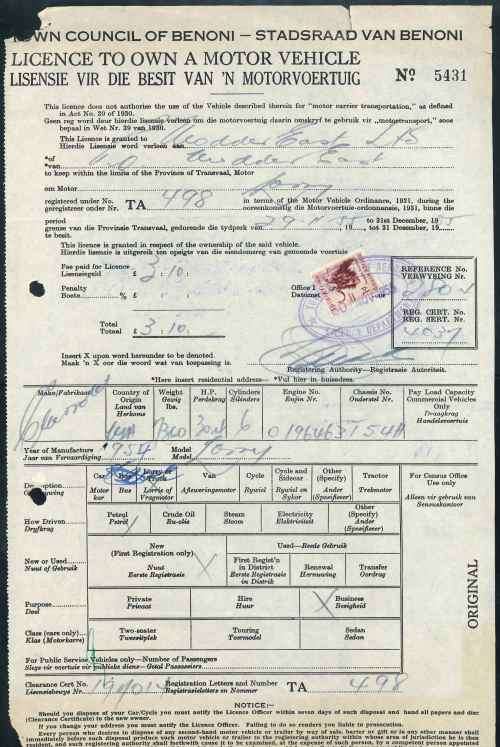 TOWN COUNCIL OF BENONI — STADSRAAD VAN BENONI
LICENCE TO OWN A MOTOR VEHICLE
LISENSIE VIR DIE BESIT VAN 'N MOTORVOERTUIG
No 5431
This licence does not authorise the use of the Vehicle described therein for "motor carrier transportation," as defined
in Act No. 39 of 1930.
Geen reg word deur hierdie lisensie verleen om die motorvoertuig daarin omskryf te gebruik vir „motortransport," soos
bepaal in Wet Nr. 39 van 1930.
This Licence is granted to
Hierdie Lisensie word verleen aan
Modder East
*of
*van
Modder East
to keep within the limits of the Province of Transvaal, Motor
om Motor
Lorry
registered under No.
geregistreer onder Nr.
TA 498
in terms of the Motor Vehicle Ordinance, 1931, during the
ooreenkomstig die Motorvoertuie-ordonnansie, 1931, binne die
period
grense van die Provinsie Transvaal, gedurende die tydperk van
te besit.
19 to 31st December, 195
19 tot 31 Desember, 195
This Licence is granted in respect of the ownership of the said vehicle.
Hierdie Lisensie is uitgereik ten opsigte van die eiendomsreg van genoemde voertuig
Fee paid for Licence
Lisensiegeld £ 3.10.
Penalty
Boete % £
Total
Totaal £ 3.10.
Office
Datumst
REFERENCE No.
VERWYSING Nr.
REG. CERT. No.
REG. SERT. Nr.
4037
Insert X upon word hereunder to be denoted.
Maak 'n X oor die woord wat van toepassing is.
Registering Authority—Registrasie Autoriteit.
*Here insert residential address— *Vul hier in huisadres.
Make/Fabrikaat
Country of Origin
Land van Herkoms
Weight
Gewig
Lbs.
H.P.
Perdekrag
Cylinders
Silinders
Engine No.
Enjin Nr.
Chassis No.
Onderstel Nr.
Pay Load Capacity
Commercial Vehicles Only
Draagkrag
Handelsvoertuie
Chevrolet
6
Year of Manufacture
Jaar van Vervaardiging
1954
Model
Model
Lorry
Car
Motorkar
Bus
Bus
Lorry or Truck
Lorrie of Vragmotor
Van
Afleweringsmotor
Cycle
Rywiel
Cycle and Sidecar
Rywiel en Sykar
Other (Specify)
Ander (Spesifiseer)
Tractor
Trekmotor
For Census Office Use only
Alleen vir gebruik van Sensuskantoor
How Driven
Dryfkrag
Petrol
Petrol
Crude Oil
Ru-olie
Steam
Stoom
Electricity
Elektrisiteit
Other (Specify)
Ander (Spesifiseer)
New or Used
Nuut of Gebruik
New
(First Registration only)
Nuut
Eerste Registrasie
X
Used—Reeds Gebruik
First Regist'n in District
Eerste Registrasie in Distrik
Renewal
Hernuwing
Transfer
Oordrag
Purpose
Doel
Private
Privaat
Hire
Huur
X
Business
Besigheid
Class (cars only)
Klas (Motorkarre)
Two-seater
Tweesitplek
Touring
Toermodel
Sedan
Sedan
For Public Service Vehicles only—Number of Passengers
Slegs vir voertuie vir publieke diens—Getal Passasiers
ORIGINAL
Clearance Cert No.
Lisensiebewys Nr.
Registration Letters and Number
Registrasieletters en Nommer
TA 498
NOTICE:—
Should you dispose of your Car/Cycle you must notify the Licence Officer within seven days of such disposal and hand all papers and disc
(Clearance Certificate) to the new owner.
If you change your address you must notify the Licence Officer. Failing to do so renders you liable to prosecution.
Every person who desires to dispose of any second-hand motor vehicle or trailer by way of sale, barter or gift or in any other manner shall
immediately before such disposal produce such motor vehicle or trailer to the registering authority within whose area of jurisdiction he is then
resident, and such registering authority shall forthwith cause it to be examined, at the expense of such person, by a competent person appointed